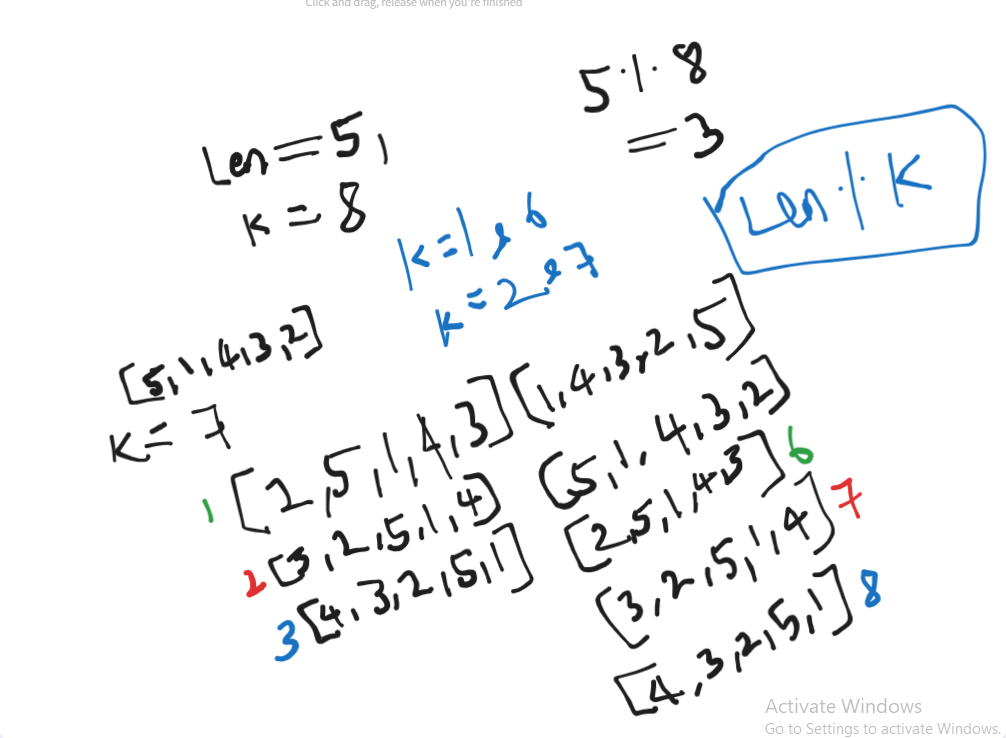 Click and drag, release when you're finished
Len = 5,
K = 8
5 % 8
= 3
Len % K
K = 1 & 6
K = 2 & 7
[5, 1, 4, 3, 2]
K = 7
1 [2, 5, 1, 4, 3] [1, 4, 3, 2, 5]
2 [3, 2, 5, 1, 4) [5, 1, 4, 3, 2]
3 [4, 3, 2, 5, 1] [2, 5, 1, 4, 3] 6
[3, 2, 5, 1, 4] 7
[4, 3, 2, 5, 1] 8
Activate Windows
Go to Settings to activate Windows.